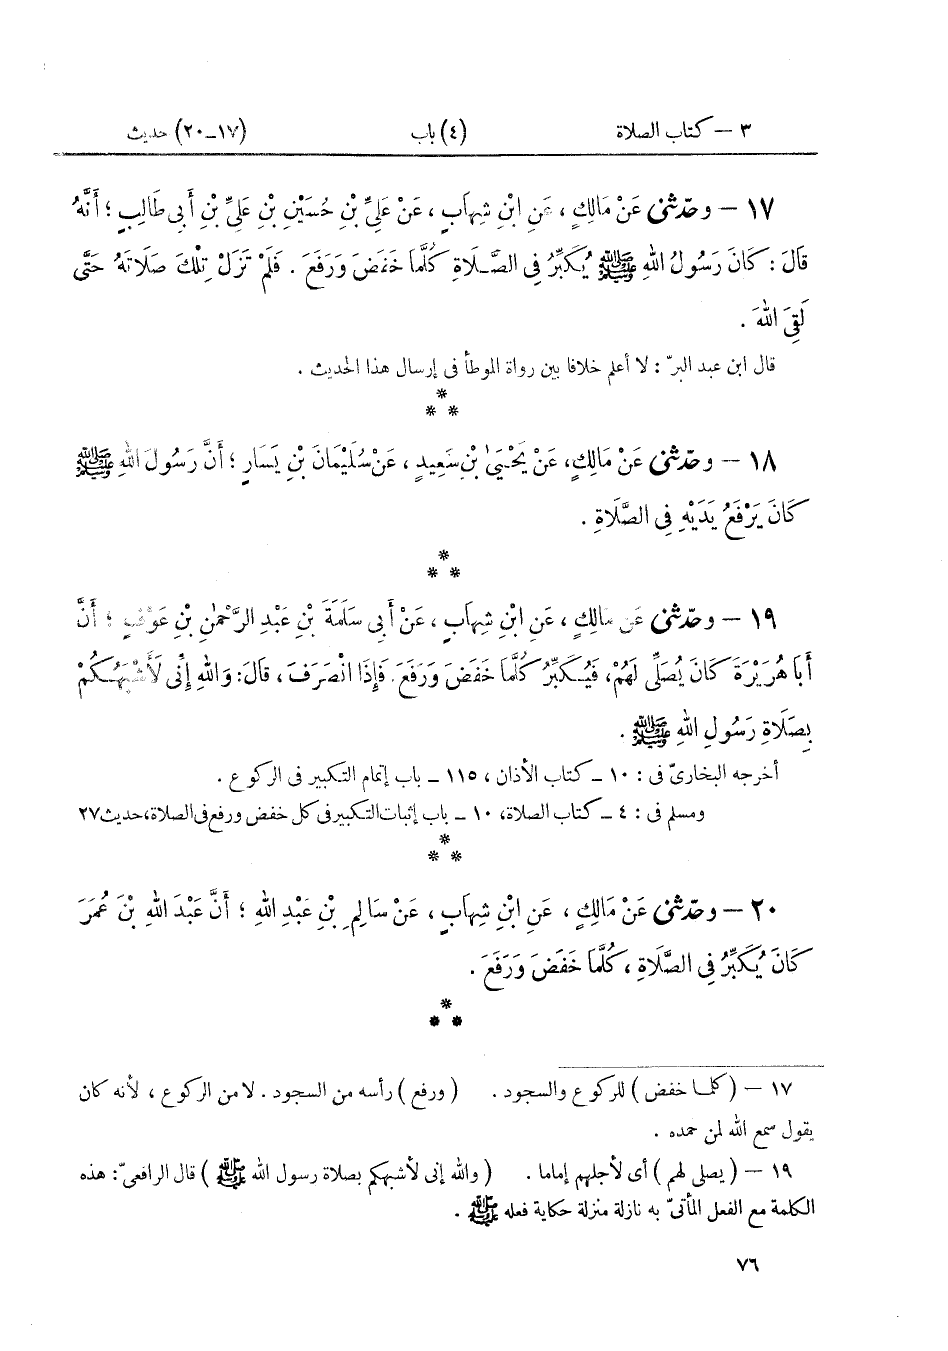 ٣ – كتاب الصلاة (٤) باب (١٧–٢٠) حديث
١٧ – وحدّثنى عَنْ مَالِكٍ ، عَنِ ابْنِ شِهَابٍ ، عَنْ عَلِيِّ بْنِ حُسَيْنِ بْنِ عَلِيِّ بْنِ أَبِى طَالِبٍ ؛ أَنَّهُ
قَالَ : كَانَ رَسُولُ اللهِ ﷺ يُكَبِّرُ فِى الصَّلَاةِ كُلَّمَا خَفَضَ وَرَفَعَ . فَلَمْ تَزَلْ تِلْكَ صَلَاتَهُ حَتَّى
لَقِىَ اللهَ .
قال ابن عبد البرّ : لا أعلم خلافا بين رواة الموطأ فى إرسال هذا الحديث .
*
* *
١٨ – وحدّثنى عَنْ مَالِكٍ، عَنْ يَحْيَىٰ بْنِ سَعِيدٍ ، عَنْ سُلَيْمَانَ بْنِ يَسَارٍ ؛ أَنَّ رَسُولَ اللهِ ﷺ
كَانَ يَرْفَعُ يَدَيْهِ فِى الصَّلَاةِ .
*
* *
١٩ – وحدّثنى عَنْ مَالِكٍ ، عَنِ ابْنِ شِهَابٍ ، عَنْ أَبِى سَلَمَةَ بْنِ عَبْدِ الرَّحْمٰنِ بْنِ عَوْفٍ ؛ أَنَّ
أَبَا هُرَيْرَةَ كَانَ يُصَلِّى لَهُمْ، فَيُكَبِّرُ كُلَّمَا خَفَضَ وَرَفَعَ. فَإِذَا انْصَرَفَ ، قَالَ: وَاللهِ إِنِّى لَأَشْبَهُكُمْ
بِصَلَاةِ رَسُولِ اللهِ ﷺ .
أخرجه البخارىّ فى : ١٠ – كتاب الأذان ، ١١٥ – باب إتمام التكبير فى الركوع .
ومسلم فى : ٤ – كتاب الصلاة، ١٠ – باب إثبات التكبير فى كل خفض ورفع فى الصلاة، حديث ٢٧
*
* *
٢٠ – وحدّثنى عَنْ مَالِكٍ ، عَنِ ابْنِ شِهَابٍ ، عَنْ سَالِمِ بْنِ عَبْدِ اللهِ ؛ أَنَّ عَبْدَ اللهِ بْنَ عُمَرَ
كَانَ يُكَبِّرُ فِى الصَّلَاةِ ، كُلَّمَا خَفَضَ وَرَفَعَ .
*
* *
١٧ – (كلما خفض) للركوع والسجود . (ورفع) رأسه من السجود . لا من الركوع ، لأنه كان
يقول سمع الله لمن حمده .
١٩ – (يصلى لهم) أى لأجلهم إماما . (والله إنى لأشبهكم بصلاة رسول الله ﷺ) قال الرافعىّ: هذه
الكلمة مع الفعل المأتىّ به نازلة منزلة حكاية فعله ﷺ .
٧٦